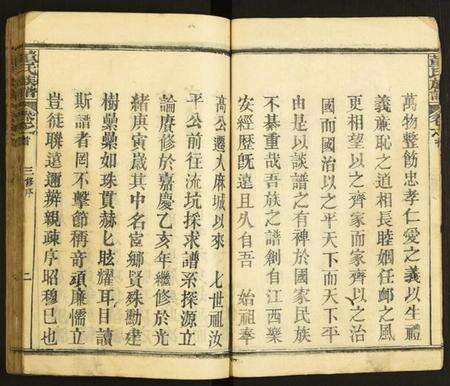 萬物整飭忠孝仁愛之義以生禮
義亷恥之道相長睦婣任䘏之風
更相望以之齊家而家齊以之治
國而國治以之平天下而天下平
由是以談譜之有裨於國家民族
不綦重哉吾族之譜創自江西樂
安經歷旣遠且久自吾 始祖奉
高公遷大麻城以來 七世祖汝
平公前往流坑採求譜系探源立
論賡修於嘉慶乙亥年繼修於光
緒庚寅歲其中名宦鄉賢殊勳建
樹纍纍如珠貫赫匕眩耀耳目讀
斯譜者罔不擊節稱音頑亷懦立
豈徒聯遠邇辨親疎序昭穆已也
董氏族譜
三修序
二